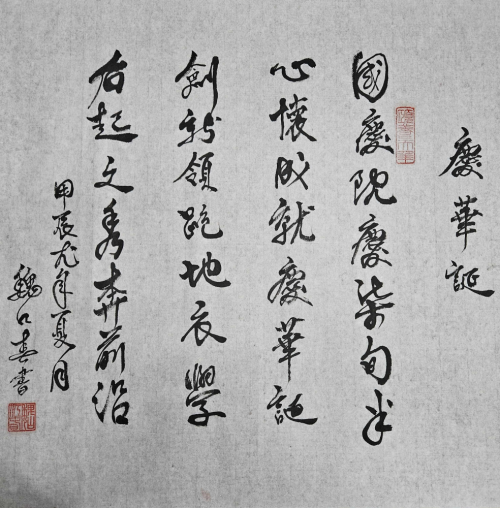 慶華誕
國慶院慶柒旬半
心懷成就慶華誕
創新領跑地衣學
后起之秀奔前沿
甲辰龙年夏月
魏江春書